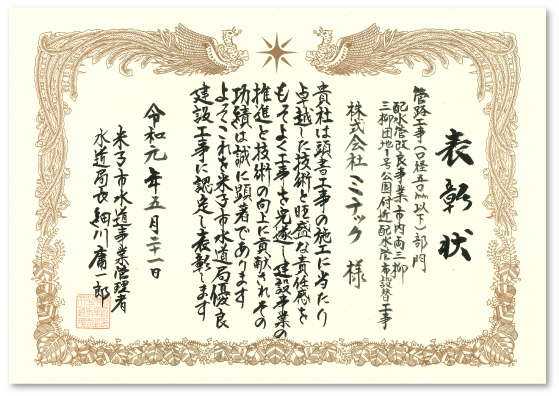 表彰状
管路工事(口径五〇㎜以下)部門
配水管改良事業 市内両三柳
三柳団地1号公園付近配水管布設替工事
株式会社ミテック 様
貴社は頭書工事の施工に当たり
卓越した技術と旺盛な責任感を
もってよく工事を完遂し建設事業の
推進と技術の向上に貢献されその
功績は誠に顕著であります
よってこれを米子市水道局優良
建設工事に認定し表彰します
令和元年五月三十一日
米子市水道事業管理者
水道局長 細川庸一郎